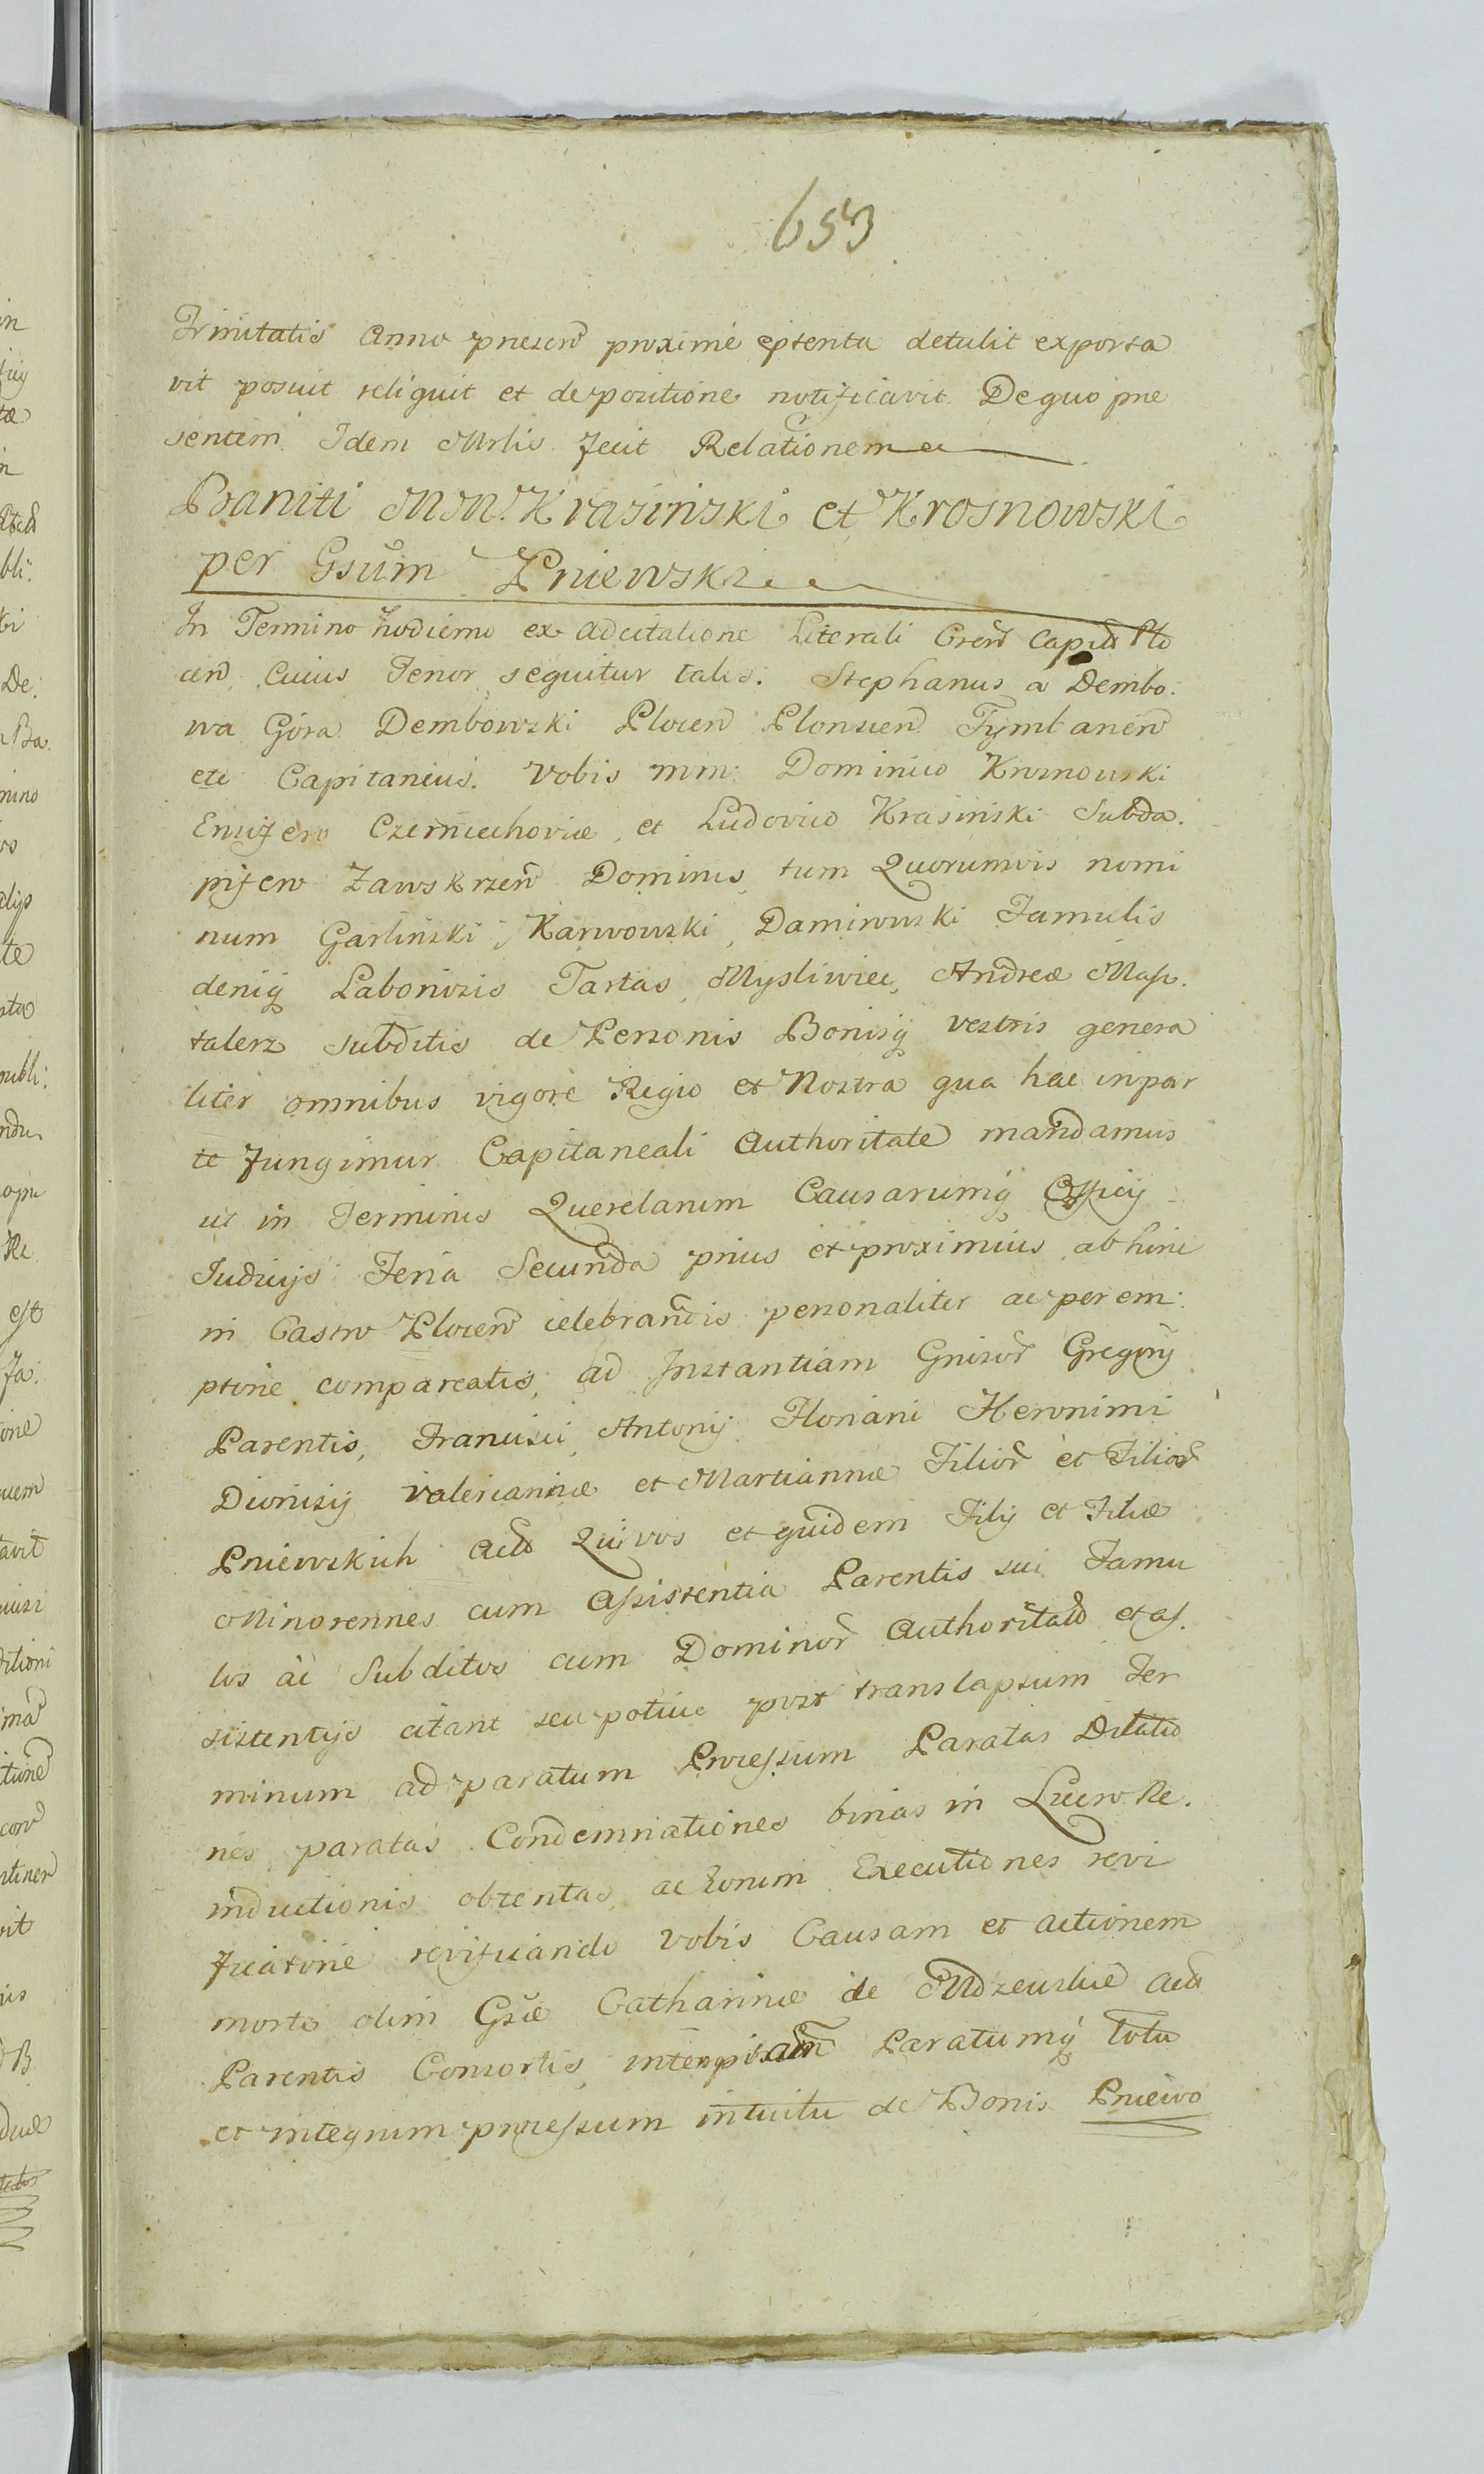 653
Trinitatis Anno presen proxime eptenta detulit exporta
vit posuit reliquit et depozitione notificavit Dequo prae
sentem Idem Mrlis fecit Relationem
Baniti MM. Krasinski et Krosnowski
per Gsum Pniewski
In Termino hodierno ex Adcitatione Literali Cren Capitl Plo
cen, Cuius Tenor sequitur talis: Stephanus a Dembo:
wa Góra Dembowski Plocen Plonscen Tymbarien
etc Capitaneus. Vobis MM: Dominico Krosnowski
Ensifero Czerniechoviæ, et Ludovico Krasinski Subda.
pifero Zawskrzen Dominis, tum Quorumvis nomi
num Garlinski, Karwowski, Damirowski Famulis
deniq Laboriozis Tartas, Mysliwiec, Andreæ Masz.
talerz subditis de Personis Bonisq vestris genera
liter omnibus vigore Regio et Nostra qua hac inpar
te Jungimur Capitaneali Authoritate mandamus
ut in Terminis Querelarum Causarumq Officij
Judicijs Feria Secunda prius et proximius abhinc
in Castro Plocen celebrandis personaliter ac perem:
ptorie compareatis, ad Instantiam Gnisor Gregorij
Parentis, Francisci, Antonij Floriani Heronimi
Dionisij Valerianniæ et Martiannæ Filior et Filiar
Pniewskich Act Qui vos et quidem Filij et Filiæ
Minorennes cum Assistentia Parentis sui Famu
los ac Subditos cum Dominor Authoritate et as.
sistentijs citant seu potius post translapsum Ter
minum ad paratum Processum Paratas Dilatio
nes paratas Condemnationes binas in Lucro Re.
inductionis obtentas, ac Eorum Executiones revi
ficatorie revificando Vobis Causam et actionem
morte olim Gsæ Catharinæ de Mdzewskie Act
Parentis Consortis, Paratumq totu
et integrum processum intuitu de Bonis Pniewo